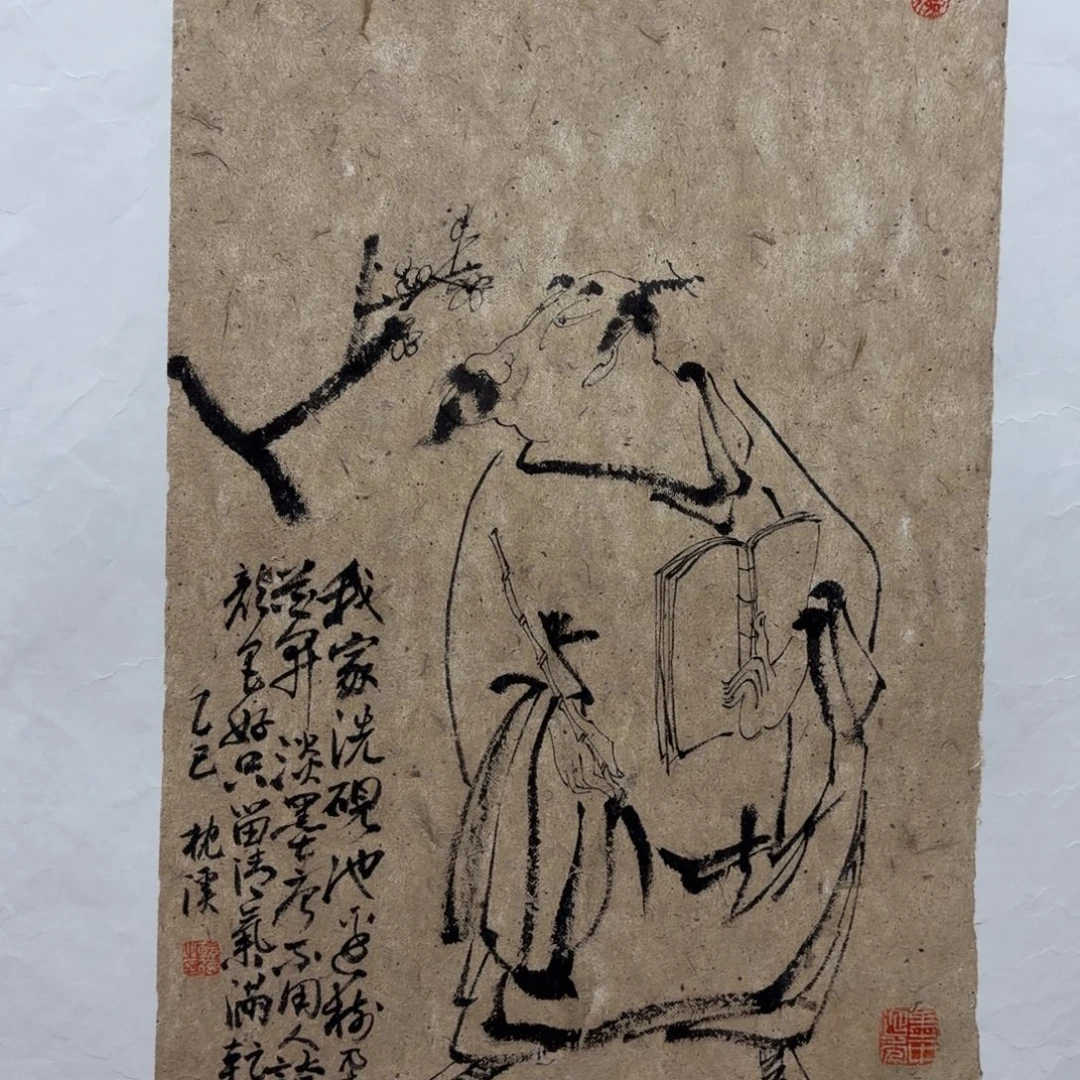 我家洗硯池邊樹
花开淡墨痕不用人誇
顏色好只留清氣滿乾
乙巳枕溪